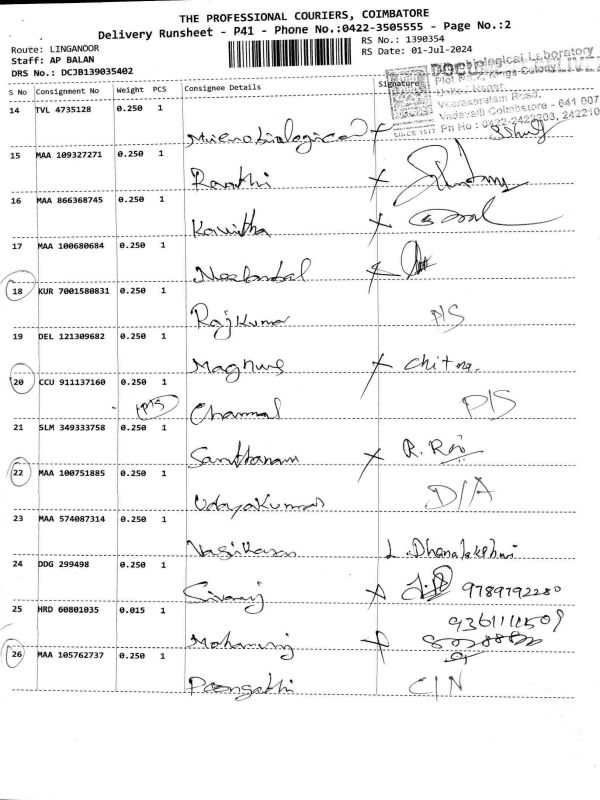 THE PROFESSIONAL COURIERS, COIMBATORE
Delivery Runsheet - P41 - Phone No.:0422-3505555 - Page No.:2
Route: LINGANOOR
Staff: AP BALAN
DRS No.: DCJB139035402
RS No.: 1390354
RS Date: 01-Jul-2024
S No Consignment No Weight PCS Consignee Details Signature
14 TVL 4735128 0.250 1
Microbiological
15 MAA 109327271 0.250 1
Ranthi
16 MAA 866368745 0.250 1
Kavitha
17 MAA 100680684 0.250 1
18 KUR 7001580831 0.250 1
Rajkumar P/S
19 DEL 121309682 0.250 1
Magnus Chitra.
20 CCU 911137160 0.250 1
P/S
21 SLM 349333758 0.250 1
Santhanam R. Raj
22 MAA 100751885 0.250 1
Udayakumar D/A
23 MAA 574087314 0.250 1
Vasikaran L. Dhanalakshmi
24 DDG 299498 0.250 1
Sivaraj 9789792280
25 HRD 60801035 0.015 1
9361111509
Mohanraj
26 MAA 105762737 0.250 1
Poongathi C/N